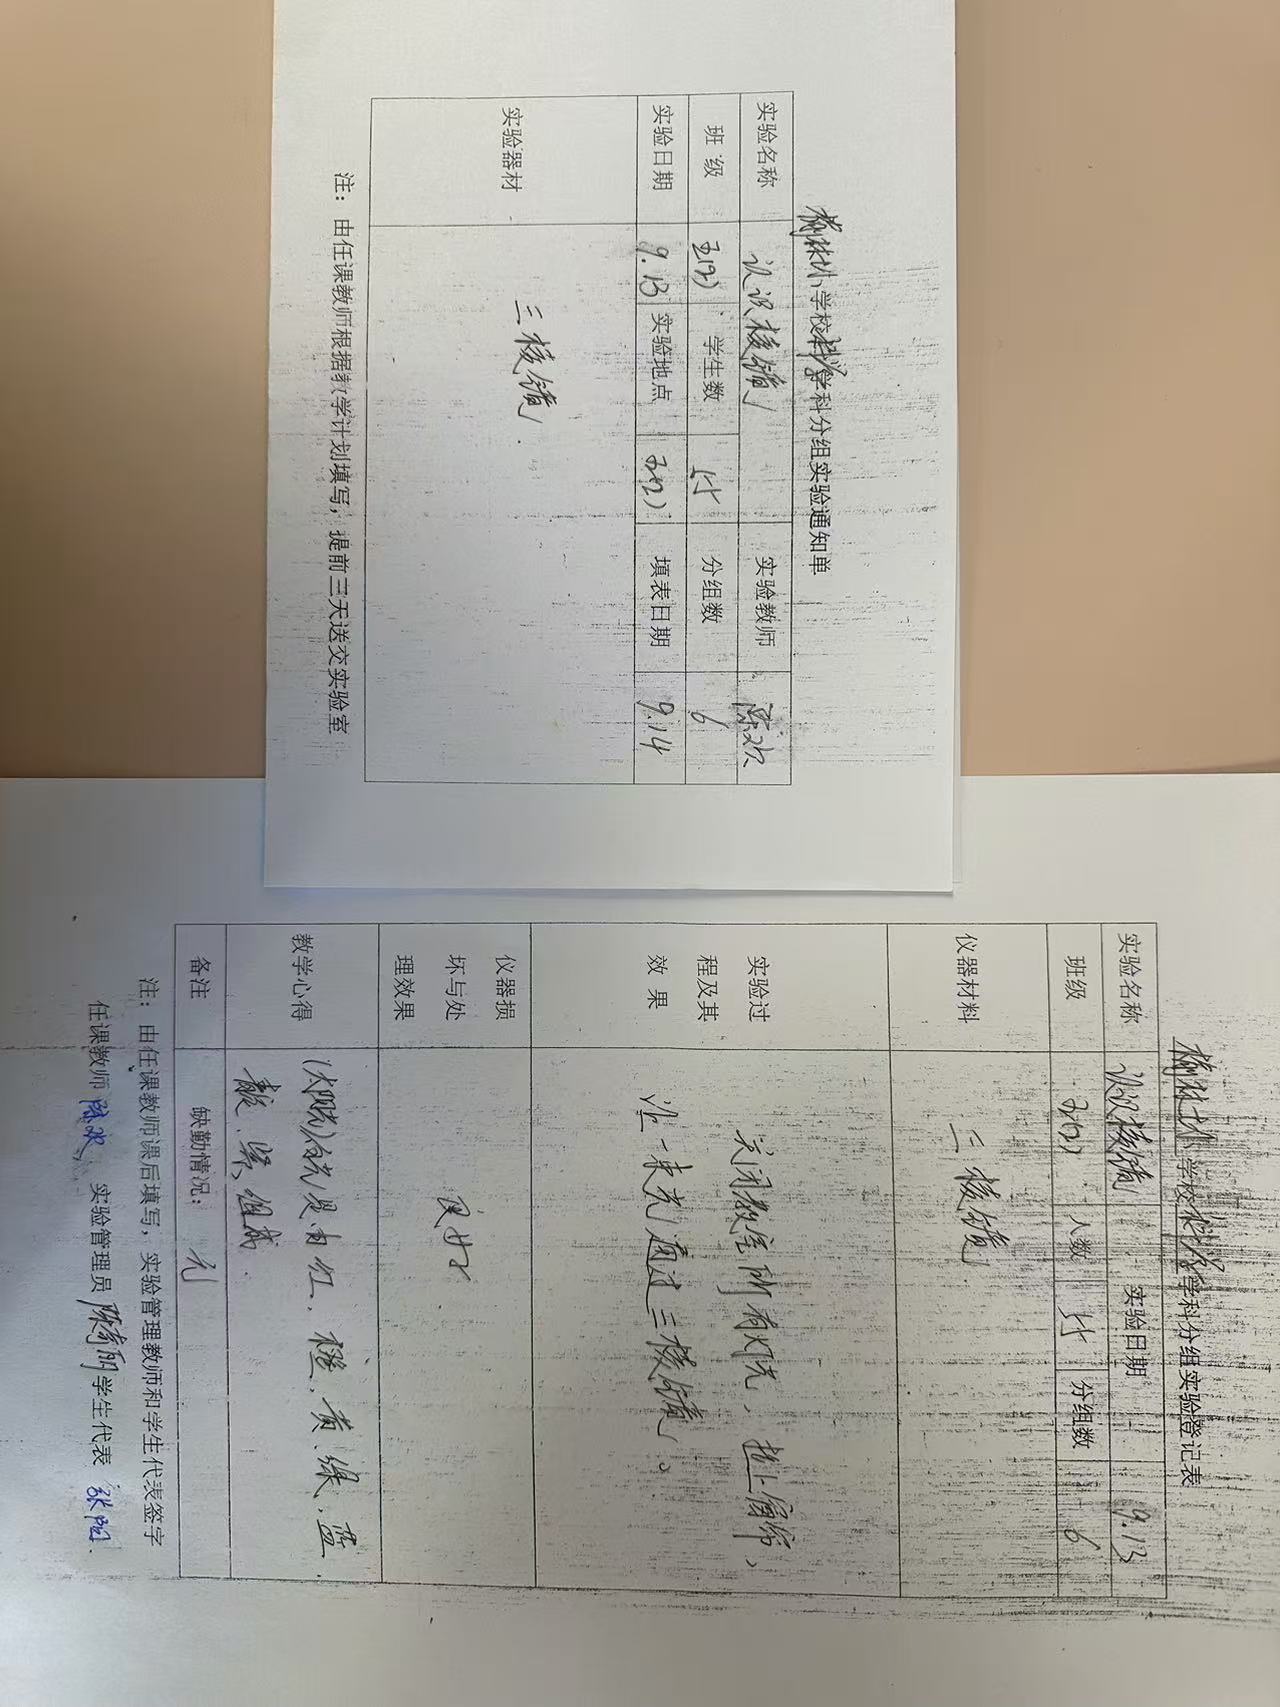 榆林大小学校科学学科分组实验通知单
实验名称 认识棱镜 实验教师 陈欢
班 级 五(2) 学生数 45 分组数 6
实验日期 9.13 实验地点 五(2) 填表日期 9.14
实验器材 三棱镜.
注：由任课教师根据教学计划填写，提前三天送交实验室
学校科学学科分组实验登记表
实验名称 认识棱镜 实验日期 9.13
班级 五(2) 人数 45 分组数 6
仪器材料 三棱镜
实验过程及其效果 关闭教室所有灯光，拉上窗帘，
让一束光通过三棱镜。
仪器损坏与处理效果 没有
教学心得 (太阳光)白光是由红、橙、黄、绿、蓝.
靛、紫、组成.
备注 缺勤情况：无
注：由任课教师课后填写，实验管理教师和学生代表签字
任课教师 陈欢 实验管理员 学生代表